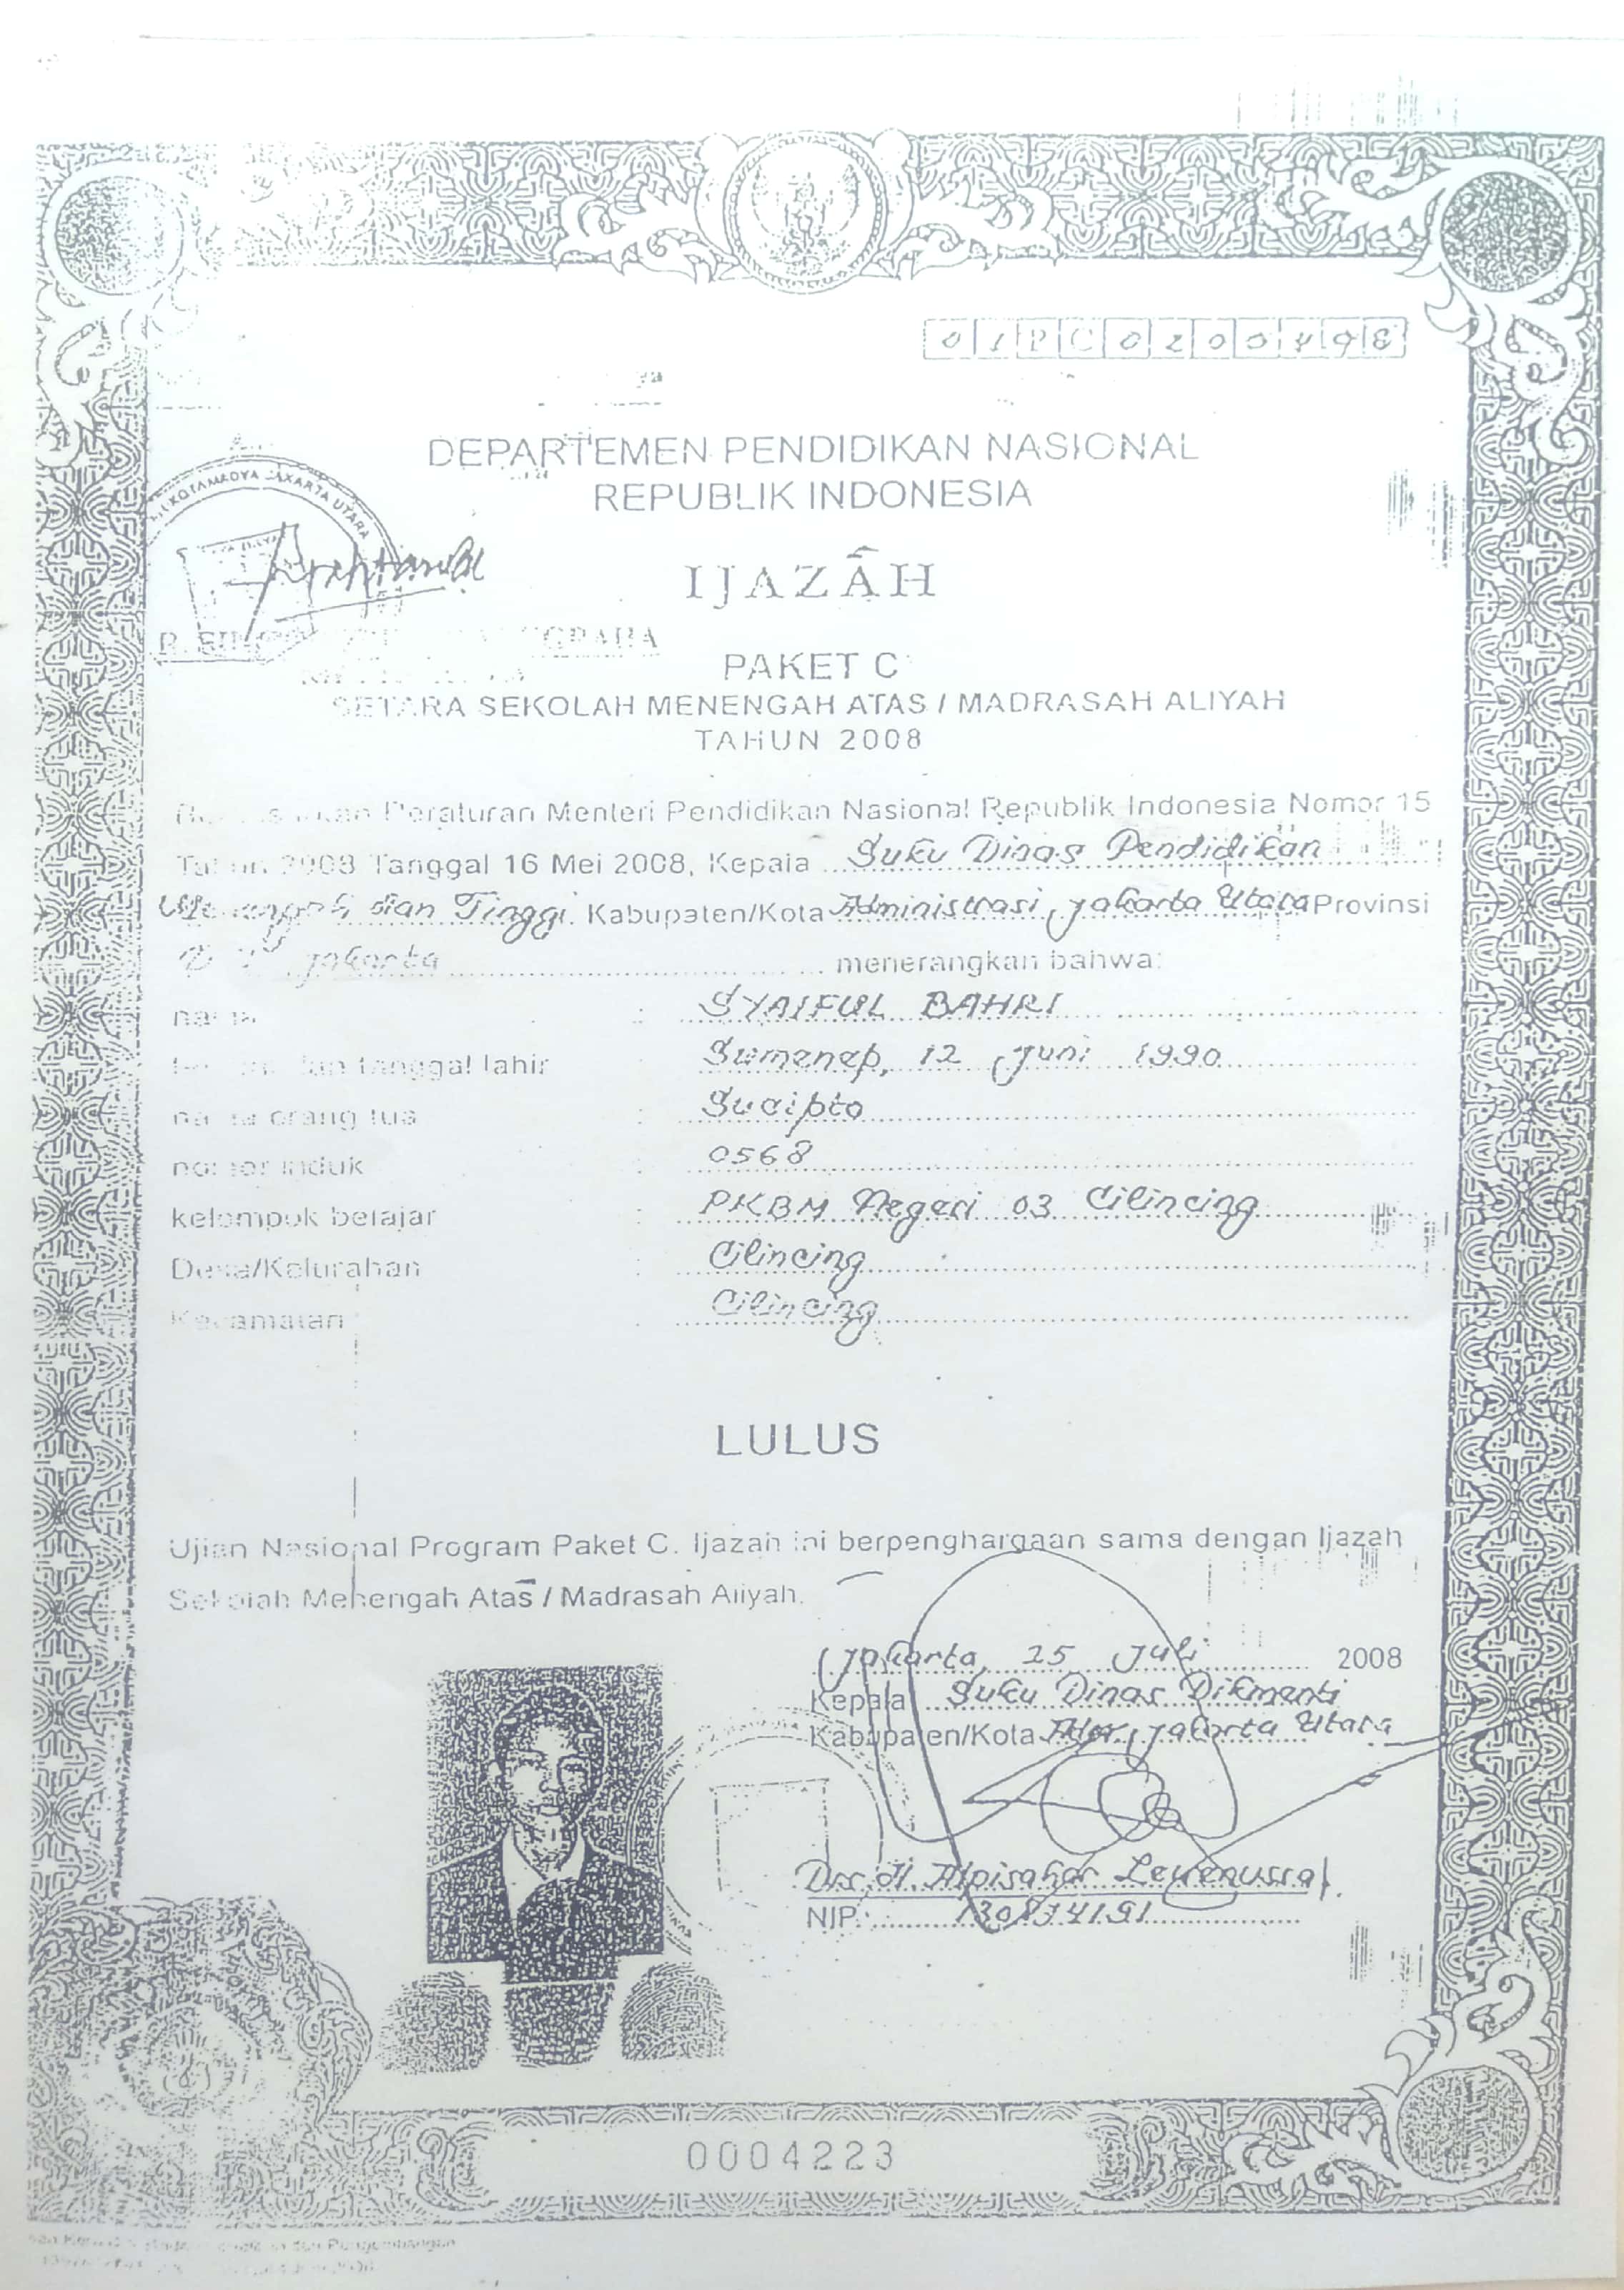 DEPARTEMEN PENDIDIKAN NASIONAL
REPUBLIK INDONESIA
KOTAMADYA JAKARTA UTARA
IJAZAH
PAKET C
SETARA SEKOLAH MENENGAH ATAS / MADRASAH ALIYAH
TAHUN 2008
Peraturan Menteri Pendidikan Nasional Republik Indonesia Nomor 15
Tahun 2008 Tanggal 16 Mei 2008, Kepala Suku Dinas Pendidikan
Menengah dan Tinggi Kabupaten/Kota Administrasi Jakarta Utara Provinsi
Jakarta menerangkan bahwa:
nama : SYAIFUL BAHRI
dan tanggal lahir : Sumenep, 12 Juni 1990
nama orang tua : Sucipto
nomor induk : 0568
kelompok belajar : PKBM Negeri 03 Cilincing
Desa/Kelurahan : Cilincing
Kecamatan : Cilincing
LULUS
Ujian Nasional Program Paket C. Ijazah ini berpenghargaan sama dengan Ijazah
Sekolah Menengah Atas / Madrasah Aliyah.
Jakarta, 25 Juli 2008
Kepala Suku Dinas Dikmenti
Kabupaten/Kota Adm. Jakarta Utara
Drs. H.
NIP.
0004223